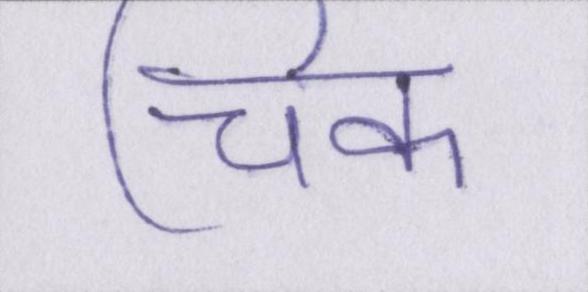 चिक